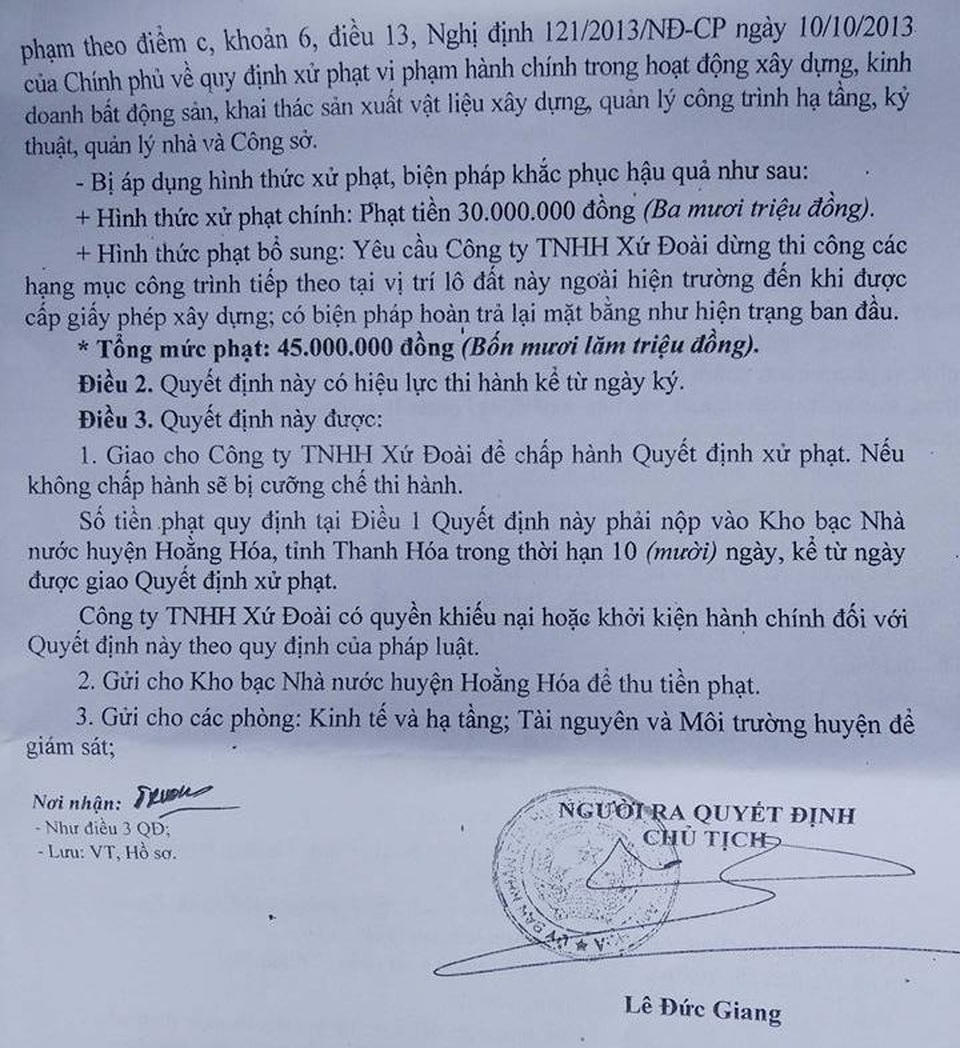 phạm theo điểm c, khoản 6, điều 13, Nghị định 121/2013/NĐ-CP ngày 10/10/2013
của Chính phủ về quy định xử phạt vi phạm hành chính trong hoạt động xây dựng, kinh
doanh bất động sản, khai thác sản xuất vật liệu xây dựng, quản lý công trình hạ tầng, kỷ
thuật, quản lý nhà và Công sở.
- Bị áp dụng hình thức xử phạt, biện pháp khắc phục hậu quả như sau:
+ Hình thức xử phạt chính: Phạt tiền 30.000.000 đồng (Ba mươi triệu đồng).
+ Hình thức phạt bổ sung: Yêu cầu Công ty TNHH Xứ Đoài dừng thi công các
hạng mục công trình tiếp theo tại vị trí lô đất này ngoài hiện trường đến khi được
cấp giấy phép xây dựng; có biện pháp hoàn trả lại mặt bằng như hiện trạng ban đầu.
* Tổng mức phạt: 45.000.000 đồng (Bốn mươi lăm triệu đồng).
Điều 2. Quyết định này có hiệu lực thi hành kể từ ngày ký.
Điều 3. Quyết định này được:
1. Giao cho Công ty TNHH Xứ Đoài để chấp hành Quyết định xử phạt. Nếu
không chấp hành sẽ bị cưỡng chế thi hành.
Số tiền phạt quy định tại Điều 1 Quyết định này phải nộp vào Kho bạc Nhà
nước huyện Hoằng Hóa, tỉnh Thanh Hóa trong thời hạn 10 (mười) ngày, kể từ ngày
được giao Quyết định xử phạt.
Công ty TNHH Xứ Đoài có quyền khiếu nại hoặc khởi kiện hành chính đối với
Quyết định này theo quy định của pháp luật.
2. Gửi cho Kho bạc Nhà nước huyện Hoằng Hóa để thu tiền phạt.
3. Gửi cho các phòng: Kinh tế và hạ tầng; Tài nguyên và Môi trường huyện để
giám sát;
Nơi nhận:
- Như điều 3 QĐ;
- Lưu: VT, Hồ sơ.
NGƯỜI RA QUYẾT ĐỊNH
CHỦ TỊCH
Lê Đức Giang